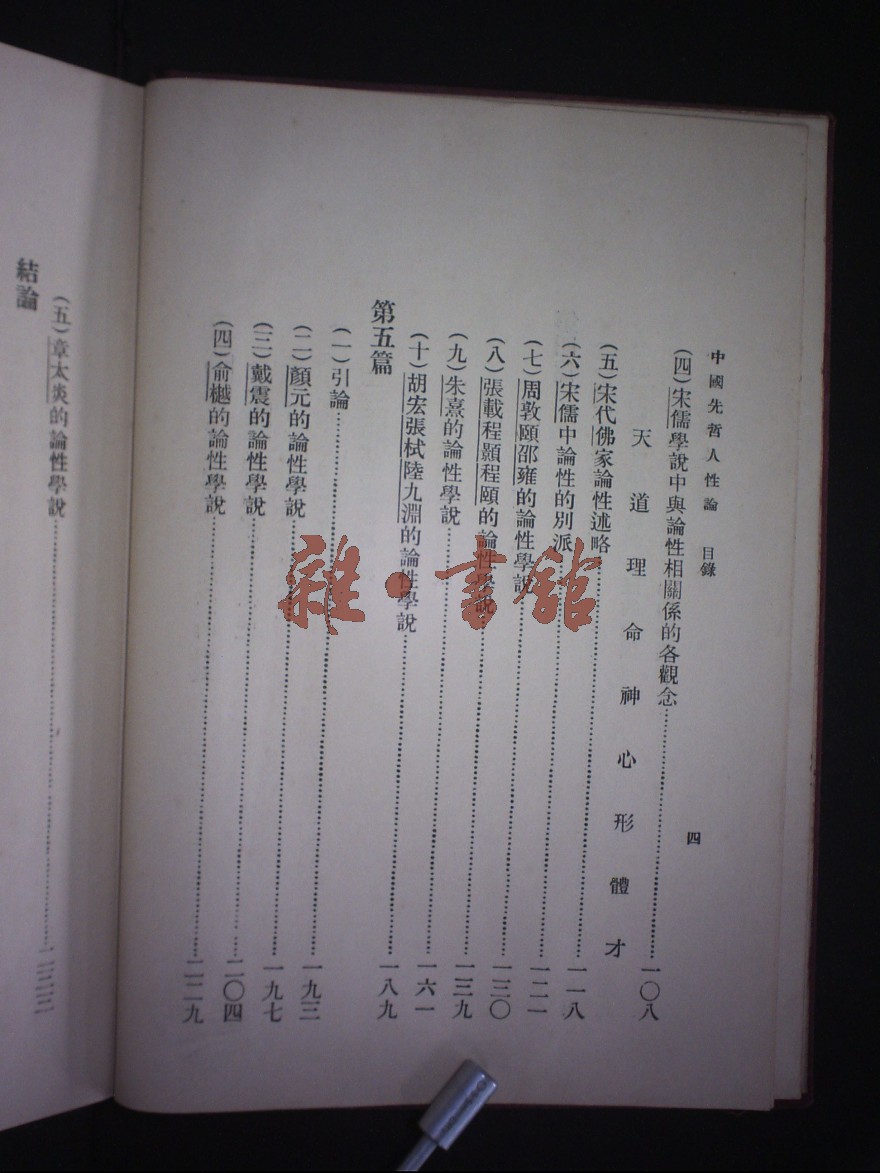 中國先哲人性論 目錄 四
(四)宋儒學說中與論性相關係的各觀念……一〇八
天道理命神心形體才
(五)宋代佛家論性述略……一一八
(六)宋儒中論性的別派……一二一
(七)周敦頤邵雍的論性學說……一三〇
(八)張載程顥程頤的論性學說……一三九
(九)朱熹的論性學說……一六一
(十)胡宏張栻陸九淵的論性學說……一八九
第五篇
(一)引論……一九三
(二)顏元的論性學說……一九七
(三)戴震的論性學說……二〇四
(四)俞樾的論性學說……二二九
(五)章太炎的論性學說……
結論
雜·書館